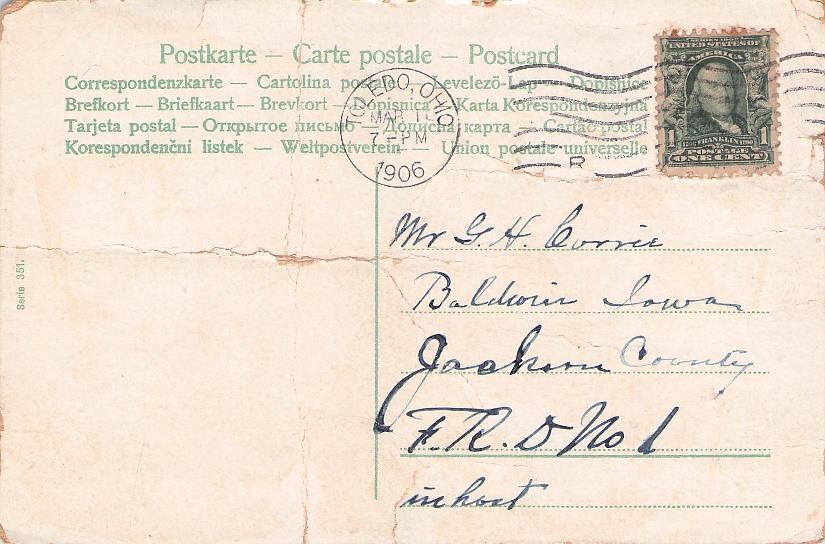 Postkarte — Carte postale — Postcard
Correspondenzkarte — Cartolina postale — Levelező-Lap — Dopisnice
Brefkort — Briefkaart — Brevkort — Dopisnica — Karta Korespondenzyjna
Tarjeta postal — Открытое письмо — Дописна карта — Cartao postal
Korespondenční listek — Weltpostverein — Union postale universelle
TOLEDO, OHIO
MAR
7 PM
1906
R
UNITED STATES OF
AMERICA
FRANKLIN
1 1
POSTAGE
ONE CENT
Serie 351.
Mr G. H. Corrie
Baldwin Iowa
Jackson County
F. R. D No 1
in host